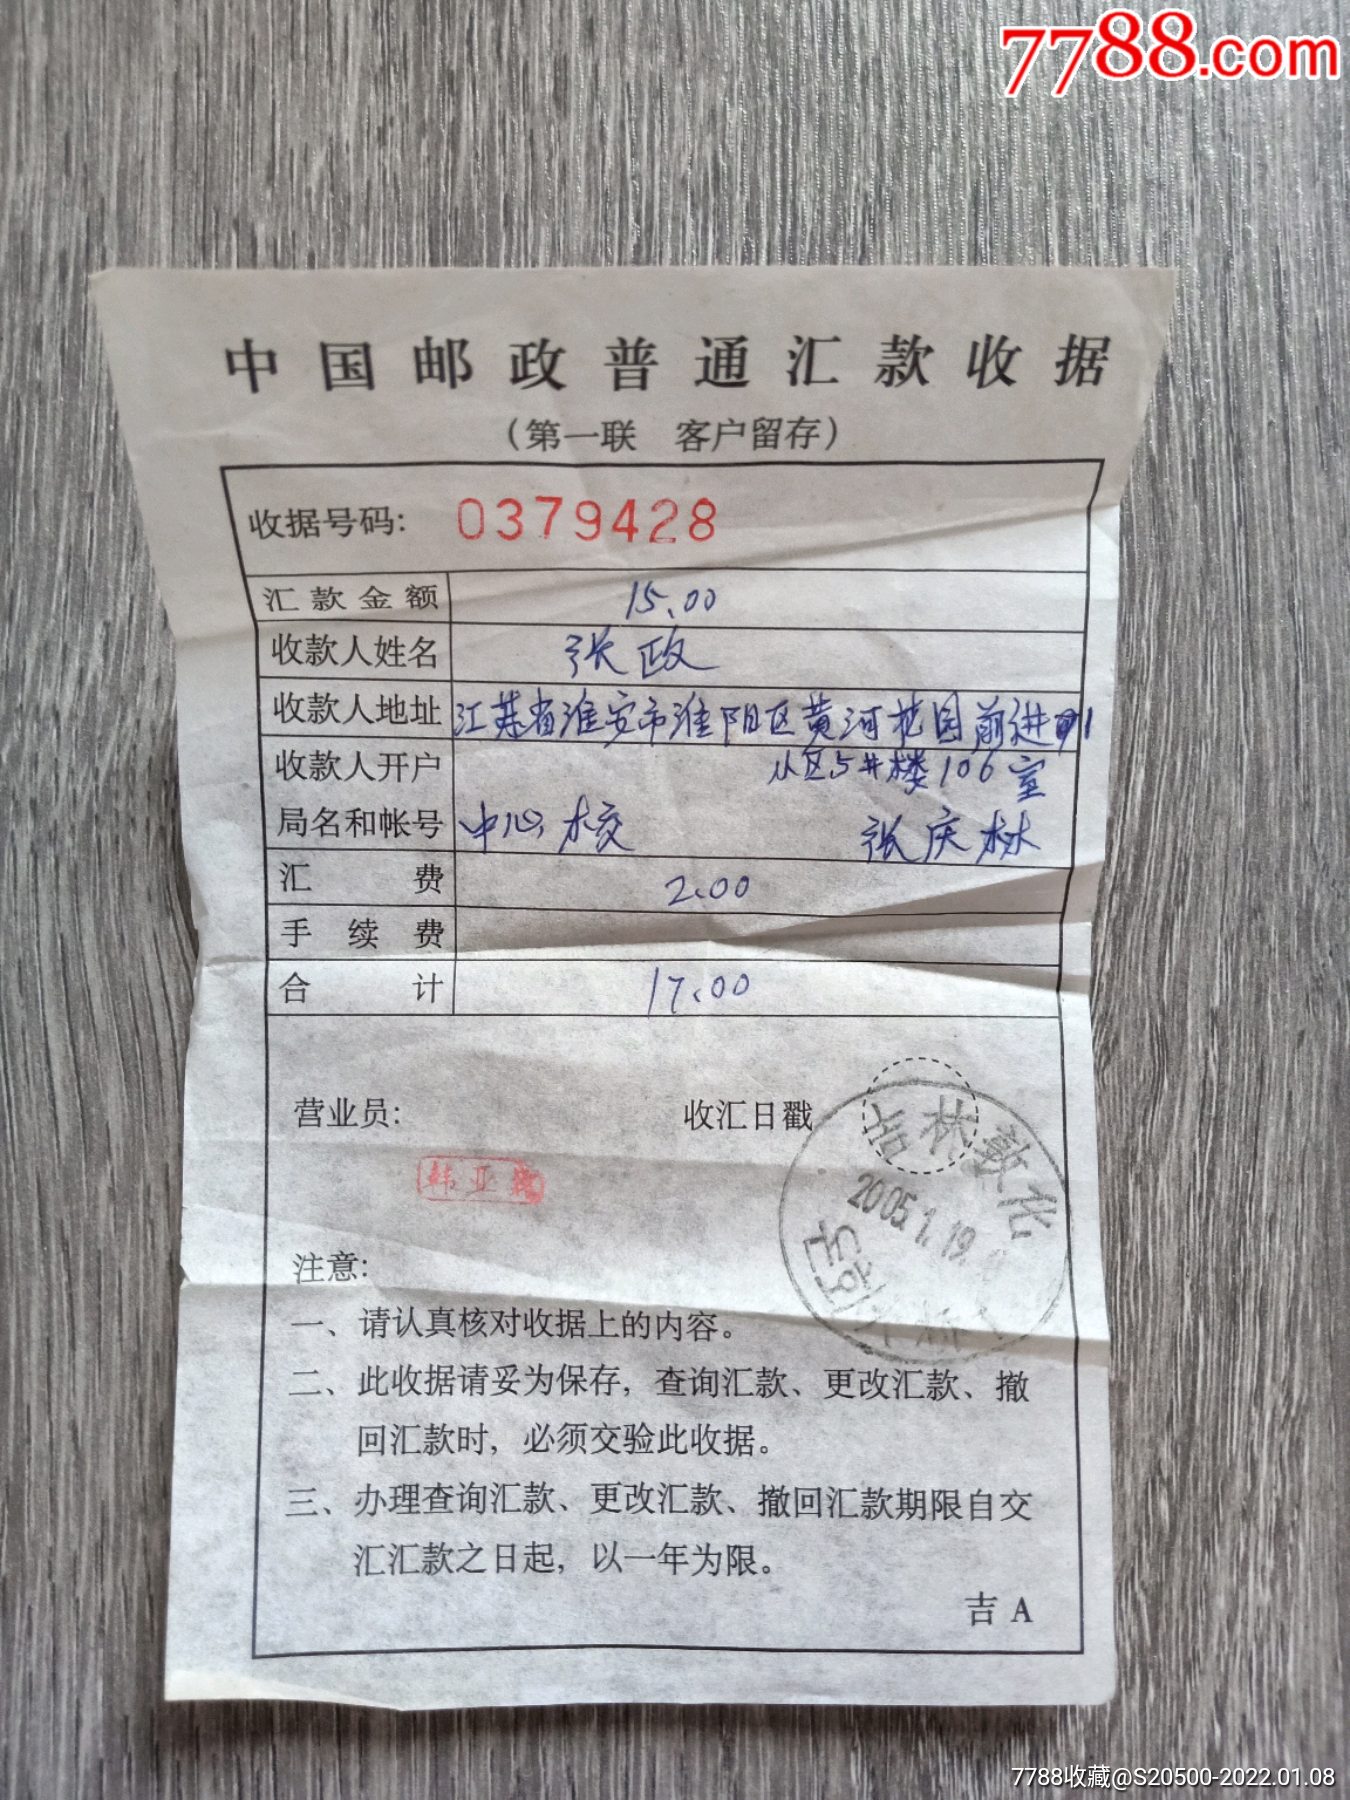 7788.com
中国邮政普通汇款收据
（第一联 客户留存）
收据号码： 0379428
汇款金额 15.00
收款人姓名 张政
收款人地址 江苏省淮安市淮阴区黄河花园前进
收款人开户 小区5#楼106室
局名和帐号 中心校 张庆林
汇费 2.00
手续费
合计 17.00
营业员：
收汇日戳
韩亚
吉林敦化
2005.1.19
注意：
一、请认真核对收据上的内容。
二、此收据请妥为保存，查询汇款、更改汇款、撤
回汇款时，必须交验此收据。
三、办理查询汇款、更改汇款、撤回汇款期限自交
汇汇款之日起，以一年为限。
吉 A
7788收藏@S20500-2022.01.08